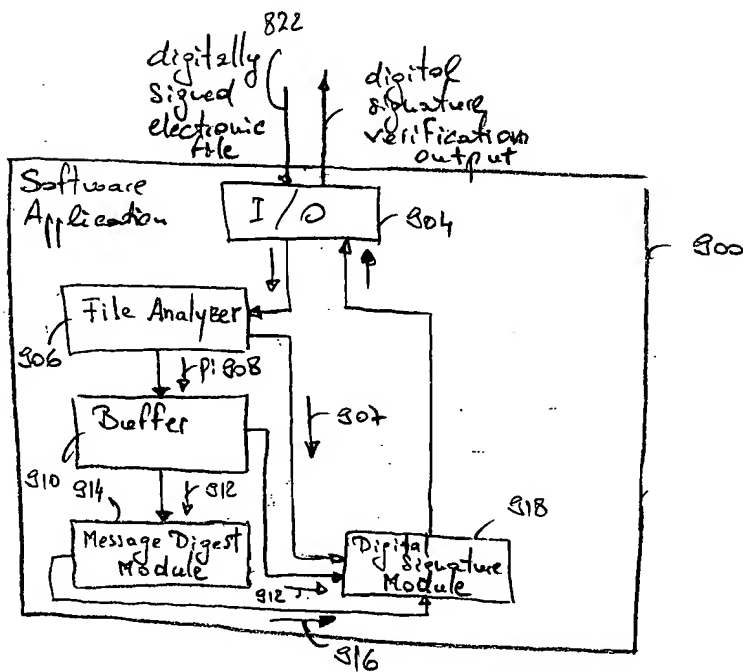 822
digitally
signed
electronic
file
digital
signature
verification
output
Software
Application
I/O
904
900
File Analyzer
906
pi 908
907
Buffer
910
914
912
918
Message Digest
Module
Digital
Signature
Module
912
916